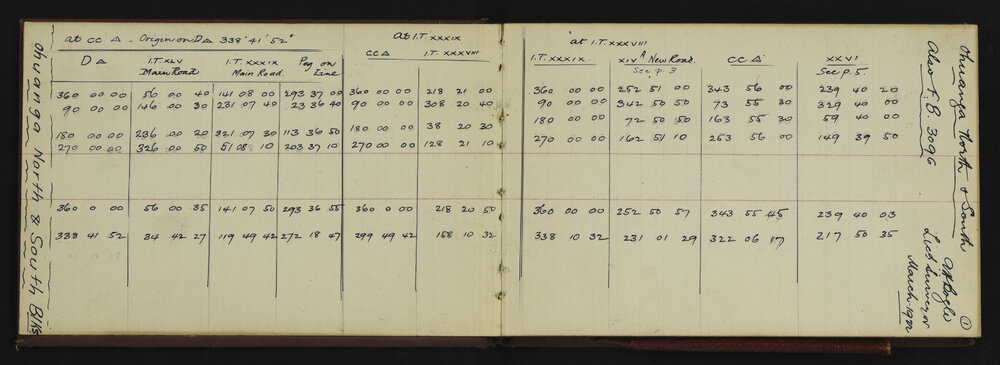 Ohuanga North & South Blks
at CC △ - Origin on D △ 338° 41' 52"
D △ I.T. XLV Main Road I.T. XXXIX Main Road. Peg on Line
360 00 00 56 00 40 141 08 00 293 37 00
90 00 00 146 00 30 231 07 40 23 36 40
180 00 00 236 00 20 321 07 30 113 36 50
270 00 00 326 00 50 51 08 10 203 37 10
360 0 00 56 00 35 141 07 50 293 36 55
338 41 52 34 42 27 119 49 42 272 18 47
at I.T. XXXIX
CC △ I.T. XXXVIII
360 00 00 218 21 00
90 00 00 308 20 40
180 00 00 38 20 30
270 00 00 128 21 10
360 0 00 218 20 50
299 49 42 158 10 32
at I.T. XXXVIII
I.T. XXXIX. XIV A New Road. See p. 3 CC △ XXVI See p. 5.
360 00 00 252 51 00 343 56 00 239 40 20
90 00 00 342 50 50 73 55 30 329 40 00
180 00 00 72 50 50 163 55 30 59 40 00
270 00 00 162 51 10 253 56 00 149 39 50
360 00 00 252 50 57 343 55 45 239 40 03
338 10 32 231 01 29 322 06 17 217 50 35
Ohuanga North & South
Also F.B. 3096
Licd Surveyor
March 1922
1